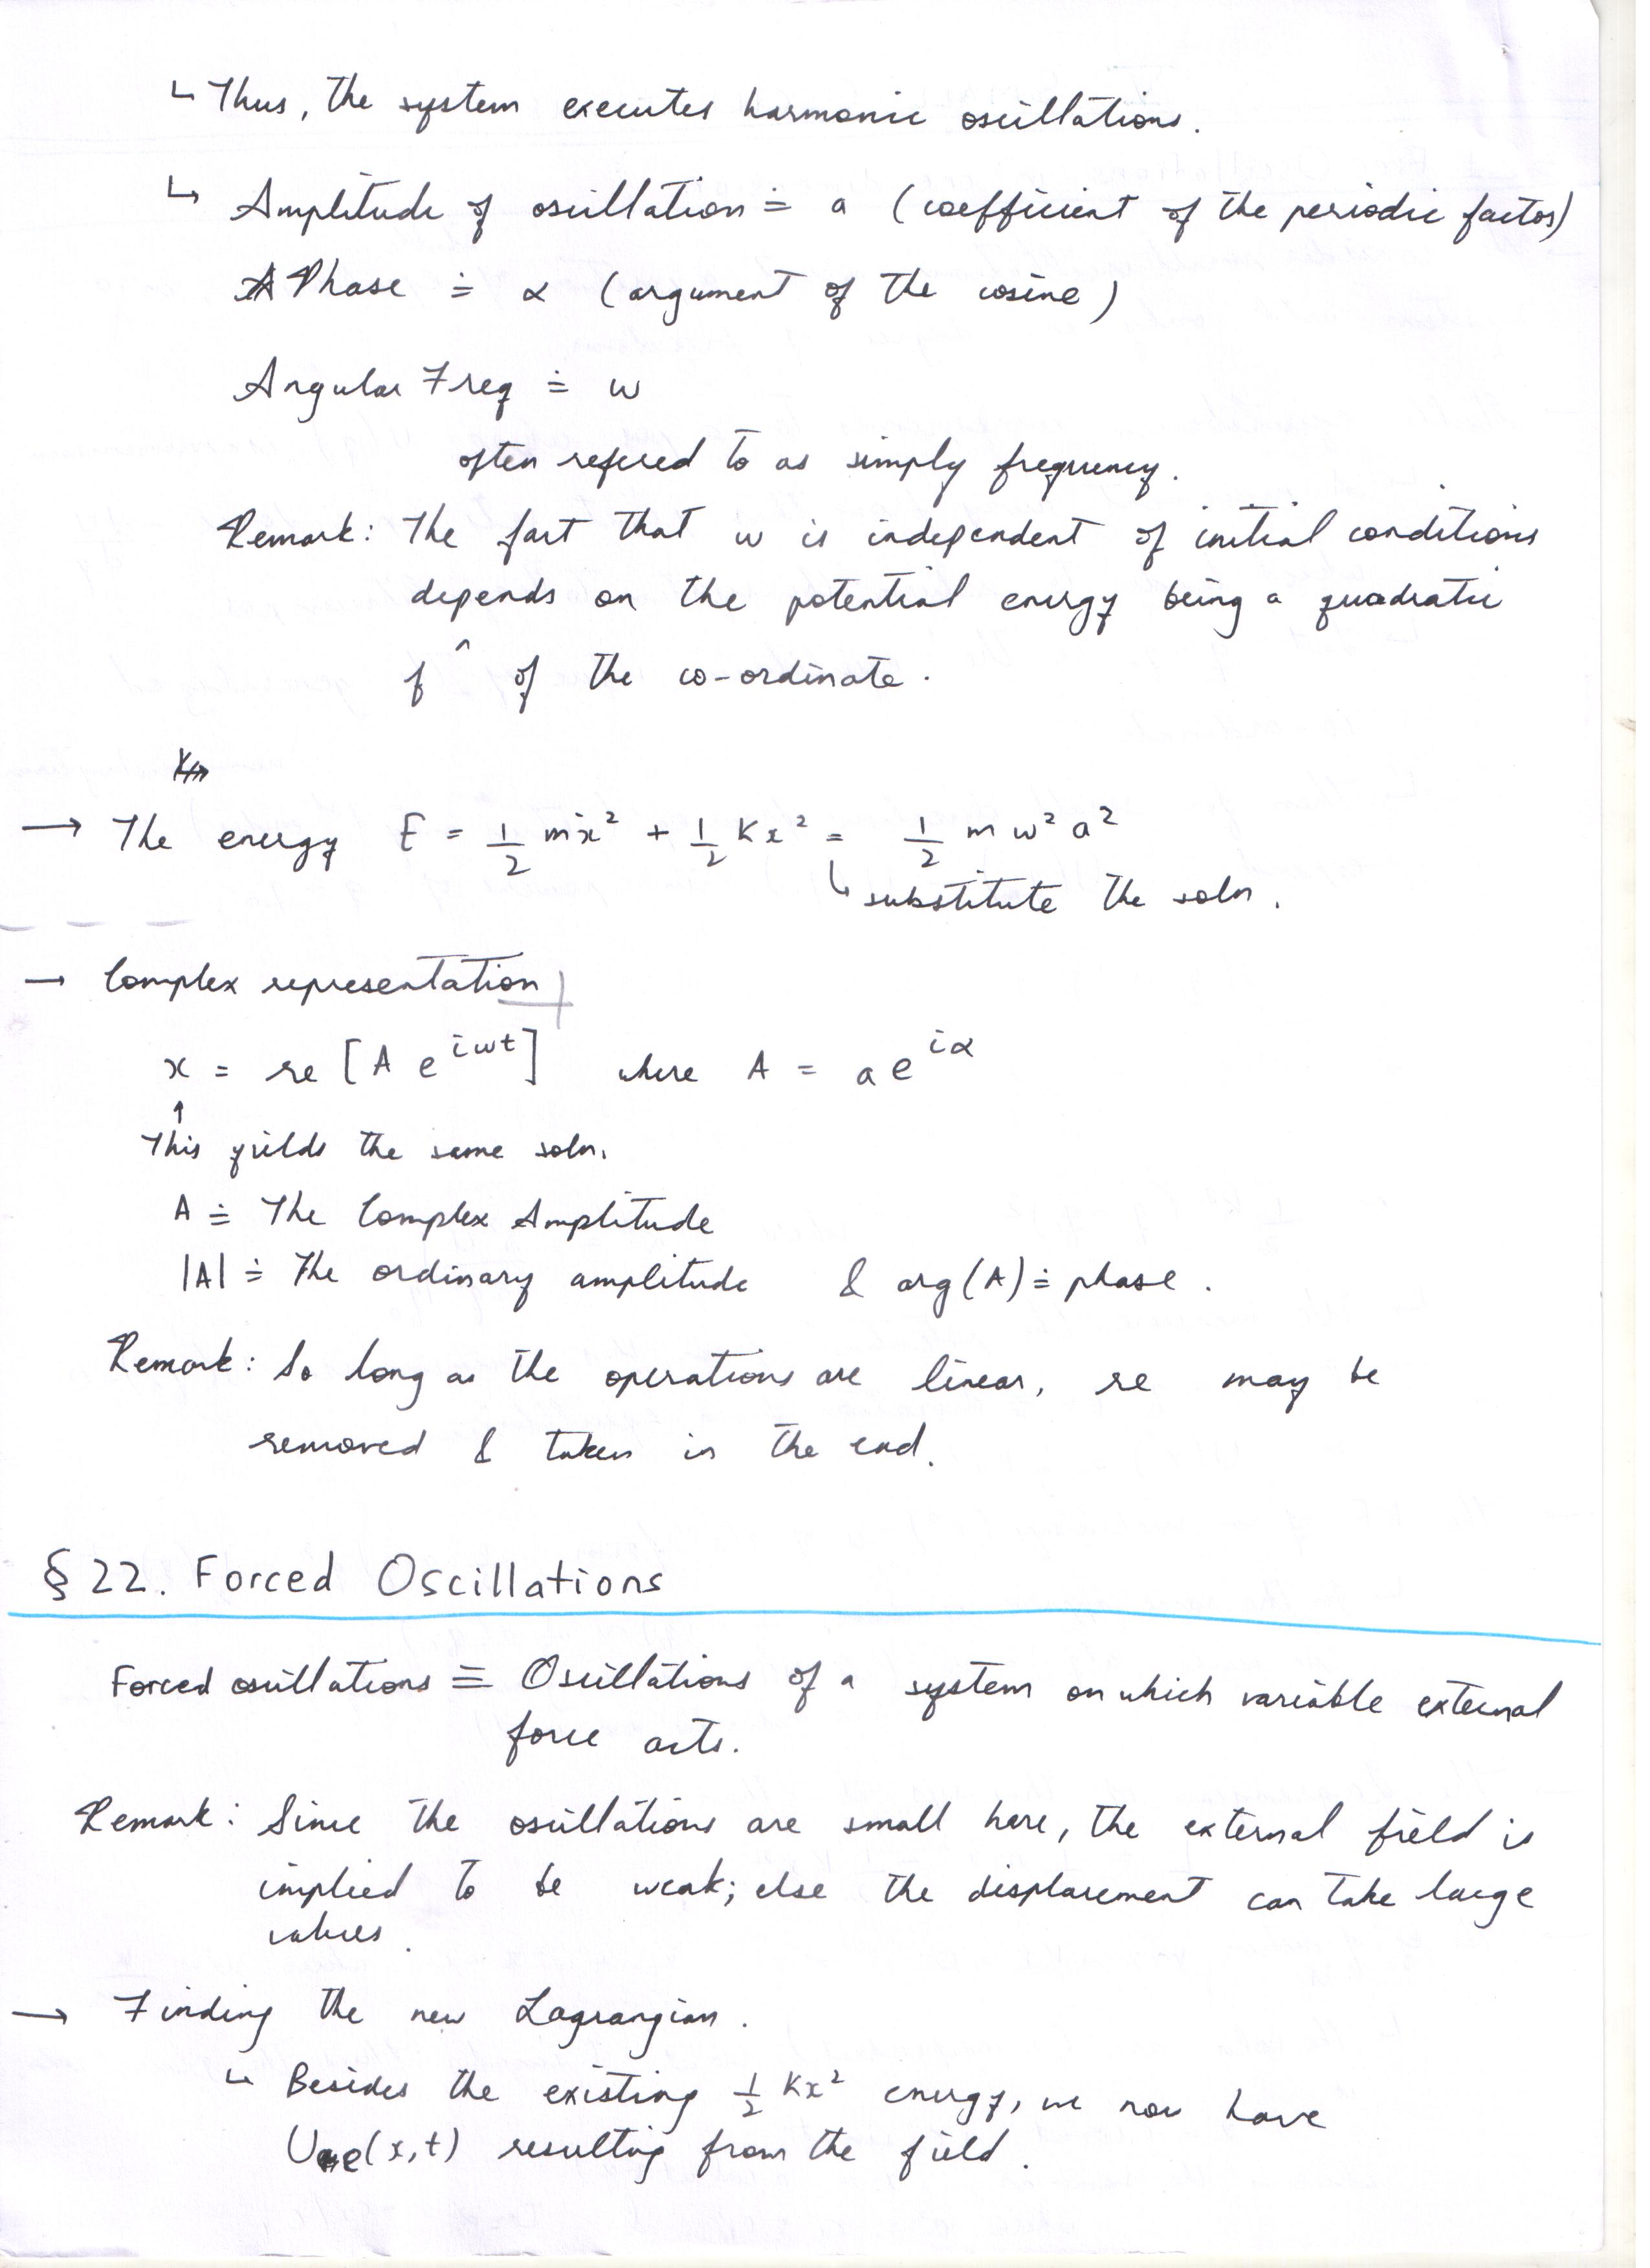 ↳ Thus, the system executes harmonic oscillations.
↳ Amplitude of oscillation ≐ a (coefficient of the periodic factor)
Phase ≐ α (argument of the cosine)
Angular Freq ≐ ω
often refered to as simply frequency.
Remark: The fact that ω is independent of initial conditions
depends on the potential energy being a quadratic
f^ of the co-ordinate.
→ The energy E = 1/2 mẋ² + 1/2 Kx² = 1/2 m ω² a²
↳ substitute the soln.
→ Complex representation
x = re [A e^{iωt}] where A = a e^{iα}
↑
This yields the same soln.
A ≐ The Complex Amplitude
|A| ≐ The ordinary amplitude & arg(A) ≐ phase.
Remark: So long as the operations are linear, re may be
removed & taken in the end.
§ 22. Forced Oscillations
Forced oscillations ≡ Oscillations of a system on which variable external
force acts.
Remark: Since the oscillations are small here, the external field is
implied to be weak; else the displacement can take large
values.
→ Finding the new Lagrangian.
↳ Besides the existing 1/2 Kx² energy, we now have
U_e(x,t) resulting from the field.